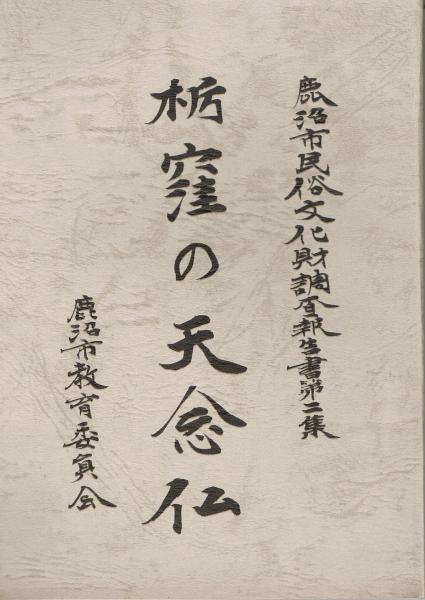 鹿沼市民俗文化財調査報告書第二集
栃窪の天念仏
鹿沼市教育委員会